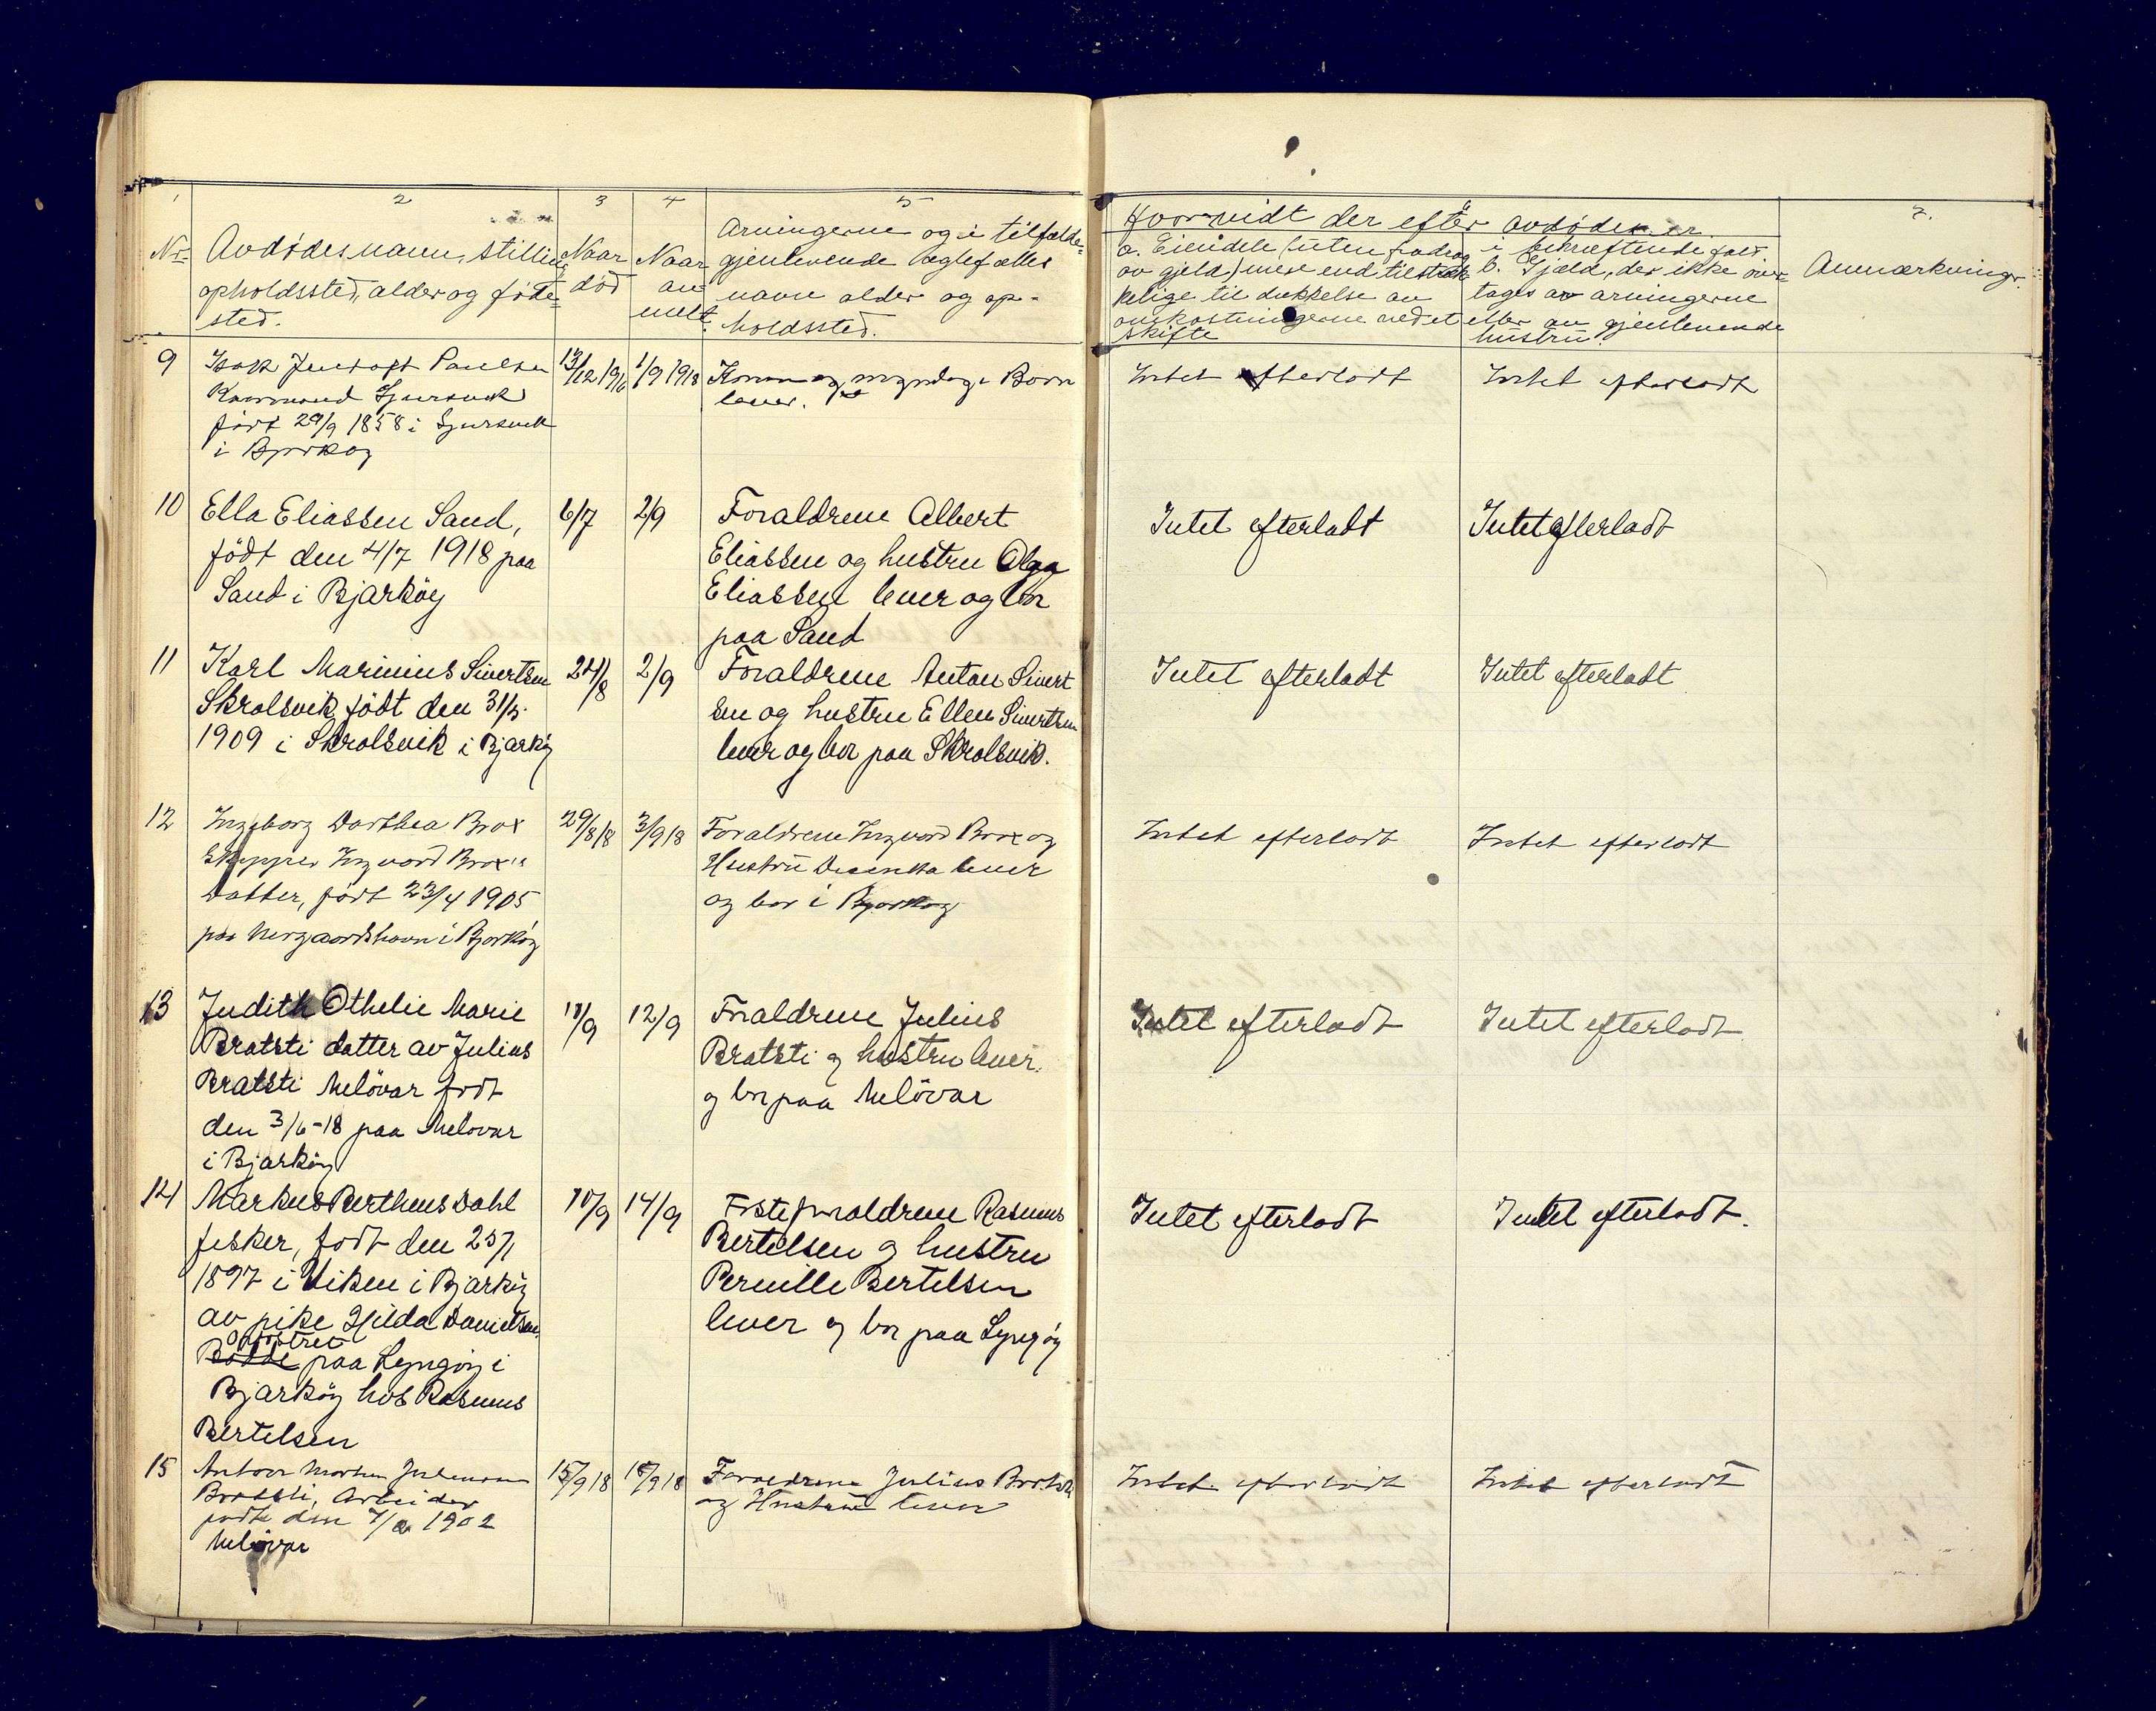 1 2 3 4 5
Nr. Avdødes navn, stilling, opholdssted, alder og føde=sted.
Naar død
Naar an=melt.
Arvingerne og i tilfælde=
gjenlevende ægtefælles
navn alder og op=
holdssted.
Hvorvidt der efter avdøde er.
a. Eiendele (uten fradrag
av gjeld) mere end tilstræk
kelige til dækkelse av
omkostningerne ved et
skifte
i bekræftende fald
b. Gjæld, der ikke over=
tages av arvingerne
eller av gjenlevende
hustru.
7.
Anmærkninger.
9 Isak Jentoft Paulsen
Kaarmand
født 29/9 1858 i
i Bjarkøy
13/12 1916
1/9 1918
Konen og myndige Børn
lever.
Intet efterladt
Intet efterladt
10 Ella Eliassen Sand,
födt den 4/7 1918 paa
Sand i Bjarköy
6/7
2/9
Foraldrene Albert
Eliassen og hustru Olga
Eliassen lever og bor
paa Sand
Intet efterladt
Intet efterladt
11 Karl Marinius Sivertsen
Skrolsvik födt den 31/5.
1909 i Skrolsvik i Bjarköy
24/8
2/9
Foraldrene Anton Sivert
sen og hustru Ellen Sivertsen
lever og bor paa Skrolsvik.
Intet efterladt
Intet efterladt
12 Ingeborg Dorthea Brox
Skipper Ingvard Brox's
Datter, født 23/4 1905
paa Nergaardshavn i Bjarköy
29/8 18
3/9 18
Foraldrene Ingvard Brox og
Hustru lever
og bor i Bjarkøy
Intet efterladt
Intet efterladt
13 Judith Othelie Marie
Bratsti datter av Julius
Bratsti Melövar født
den 3/6-18 paa Melövar
i Bjarköy
11/9
12/9
Foraldrene Julius
Bratsti og hustru lever.
og bor paa Melövar
Intet efterladt
Intet efterladt
14 Markus Bertheus Dahl
fisker, født den 25/1
1897 i Viken i Bjarköy
av pike Hilda Danielsen,
opfostret
Bodde paa Lyngöy i
Bjarköy hos Rasmus
Bertelsen
10/9
14/9
Fosteforaldrene Rasmus
Bertelsen og hustru
Pernille Bertelsen
lever og bor paa Lyngöy
Intet efterladt
Intet efterladt.
15 Anton Morten
Bratsti, Arbeider
født den 1902
Melövar
15/9 18
18/9 18
Foraldrene Julius Bratsti
og Hustru lever
Intet efterladt
Intet efterladt